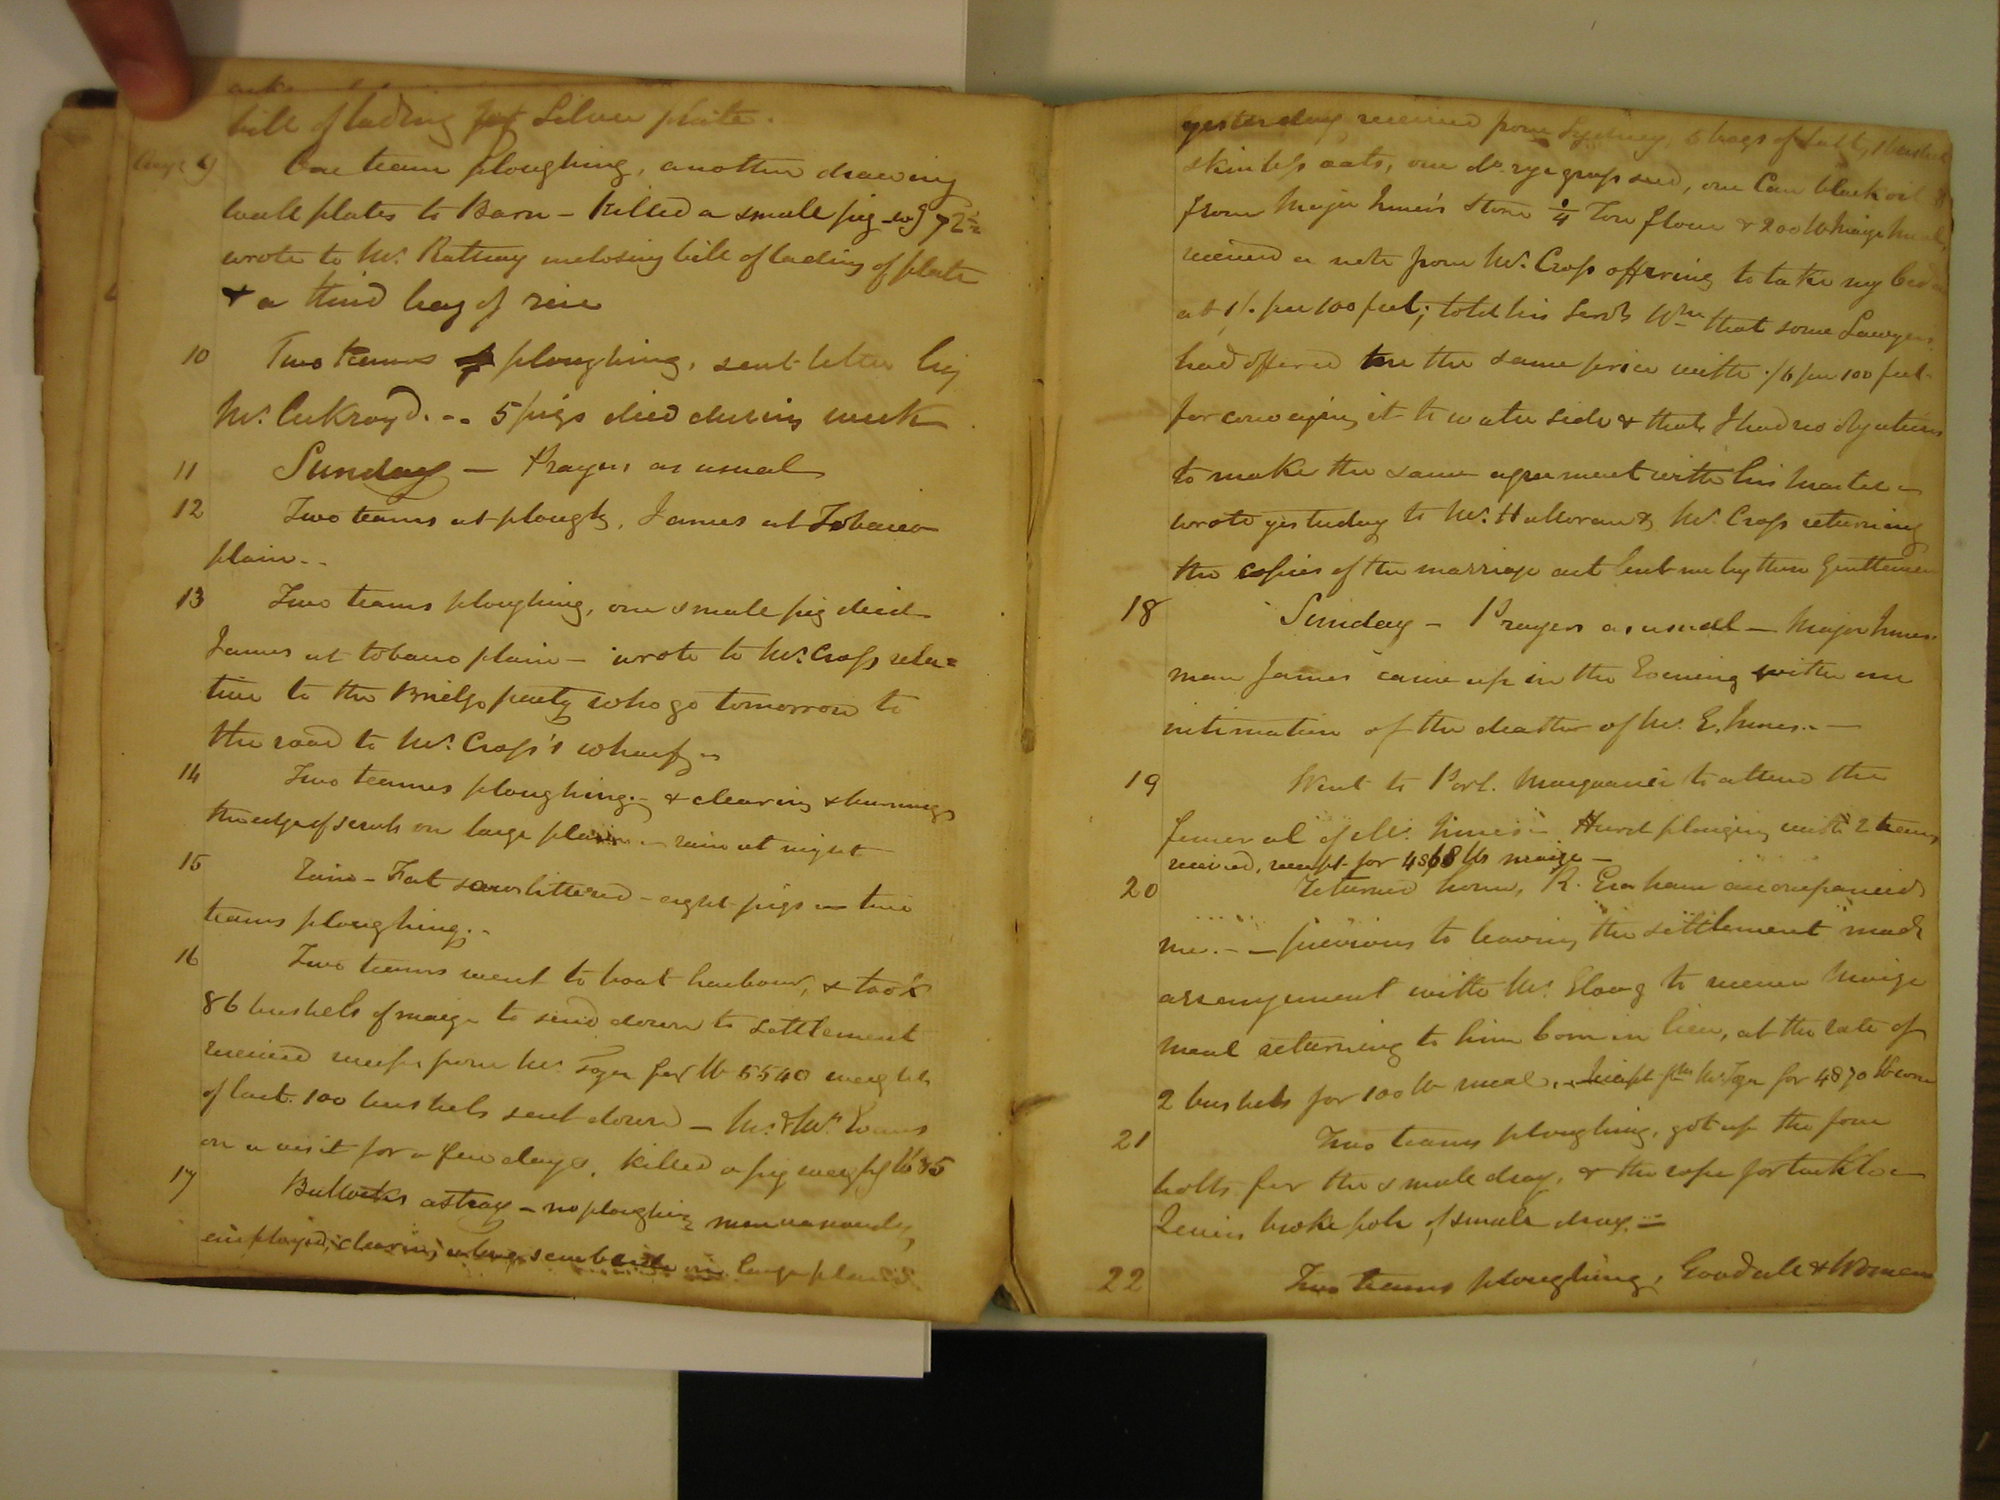 bill of lading for Silver plate.
Augt 9 One team ploughing, another drawing
wall plates to Barn - Killed a small pig - wg 72½
wrote to Mr. Rattray inclosing bill of lading of plate
& a third bag of rice
10 Two teams ploughing, sent letter by
Mr. Ackroyd. -- 5 pigs died during week
11 Sunday - Prayers as usual
12 Two teams at plough, James at Tobacco
plain --
13 Two teams ploughing, one small pig died -
James at tobacco plain - wrote to Mr. Cross rela=
tive to the Bridge party who go tomorrow to
the road to Mr. Cross's wharf -
14 Two teams ploughing - & clearing & burning
the edge of scrub on large plain - rain at night
15 Rain - Fat sow littered - eight pigs - two
teams ploughing. -
16 Two teams went to boat harbour, & took
86 bushels of maize to send down to Settlement
received receipt from Mr. for lb 5540 weight
of last 100 bushels sent down - Mr. & Mrs. Evans
on a visit for a few days. Killed a pig weighg lb 85
17 Bullocks astray - no ploughing men variously
employed, clearing scrub in large plain
yesterday, received from Sydney, 5 bags of salt, 1 bushel
skinless oats, one do. rye grass seed, one Can black oil &
from Major Innes's Store ¼ Ton flour & 200 lb maize meal,
received a note from Mr. Cross offering to take my
at 1/. per 100 feet; told his Servt. Wm that some Sawyers
had offered me the same price with ./6 per 100 feet
for conveying it to water side & that I had no objections
to make the same agreement with his Master -
wrote yesterday to Mr. Halloran & Mr. Cross returning
the copies of the marriage act lent me by these Gentlemen
18 Sunday - Prayers as usual - Major Innes'
man James came up in the Evening with an
intimation of the death of Mr. E. Innes. -
19 Went to Port Macquarie to attend the
funeral of Mr. Innes - Hurd ploughing with 2 teams,
received, receipt for 4868 lbs maize -
20 Returned home, R. Graham accompanied
me. - - previous to leaving the settlement made
arrangement with Mr. to receive Maize
meal returning to him corn in lieu, at the rate of
2 bushels for 100 lb meal. - Receipt fm Mr. for 4870 lb corn
21 Two teams ploughing, got up the four
bolts for the small dray, & the rope for tackle -
Lewis broke pole of small dray. =
22 Two teams ploughing, Goodall &